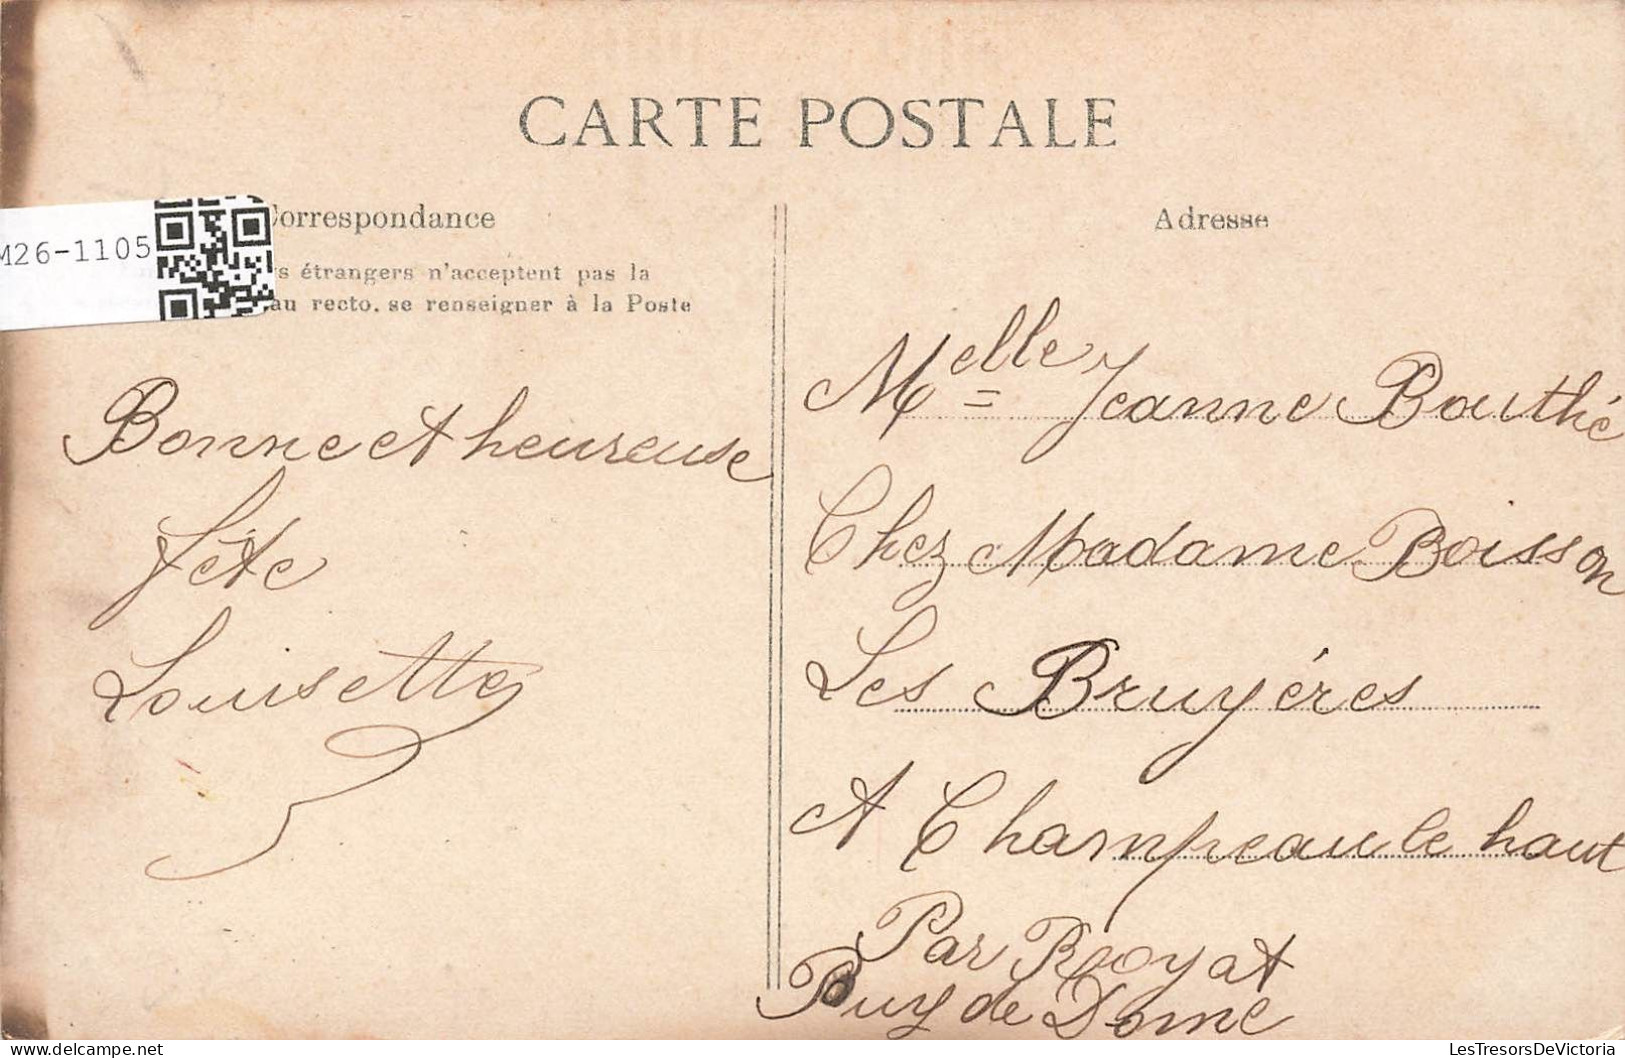 CARTE POSTALE
Correspondance
Adresse
M26-1105
étrangers n'acceptent pas la
au recto, se renseigner à la Poste
Bonne et heureuse
fête
Louisette
Melle Jeanne Bouthé
Chez Madame Boisson
Les Bruyéres
A Champeau le haut
Par Royat
Puy de Dome
LesTresorsDeVictoria